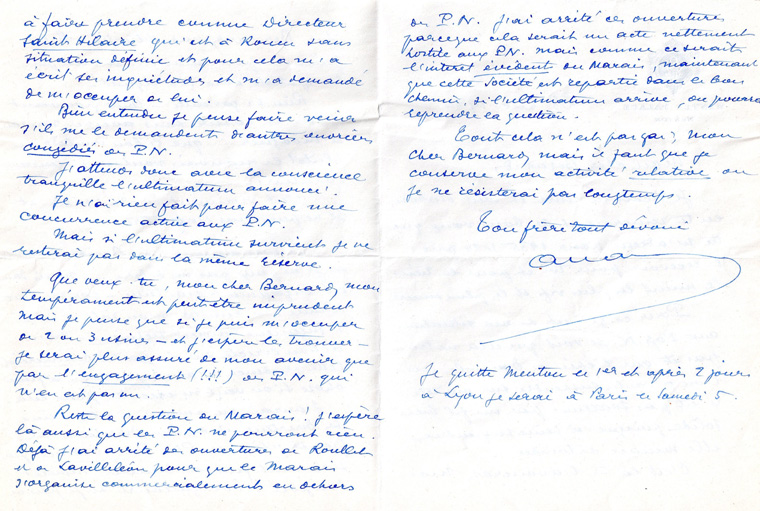 à faire prendre comme Directeur
Saint Hilaire qui est à Rouen sans
situation définie et pour cela m'a
écrit ses inquiétudes et m'a demandé
de m'occuper de lui.
Bien entendu je pense faire venir
s'ils me le demandent d'autres ouvriers
congédiés des P.N.
J'attends donc avec la conscience
tranquille l'ultimatum annoncé.
Je n'ai rien fait pour faire une
concurrence active aux P.N.
Mais si l'ultimatum survient je ne
resterai pas dans la même réserve.
Que veux-tu, mon cher Bernard, mon
tempérament est peut être imprudent
mais je pense que si je puis m'occuper
de 2 ou 3 usines - et j'espère les trouver -
je serai plus assuré de mon avenir que
par l'engagement (!!!) des P.N. qui
n'en est pas un.
Reste la question du Marais! J'espère
là aussi que les P.N. ne pourront rien.
Déjà j'ai arrêté des ouvertures de Roullet
et de Lavilleléon pour que le Marais
s'organise commercialement en dehors
des P.N. J'ai arrêté ces ouvertures
parceque cela serait un acte nettement
hostile aux P.N. mais comme ce serait
l'intérêt évident du Marais, maintenant
que cette Société est repartie dans le bon
chemin, si l'ultimatum arrive, on pourra
reprendre la question.
Tout cela n'est pas gai, mon
cher Bernard, mais il faut que je
conserve mon activité relative ou
je ne résisterai pas longtemps.
Ton frère tout dévoué
Je quitte Menton le 1er et après 2 jours
à Lyon je serai à Paris le Samedi 5.